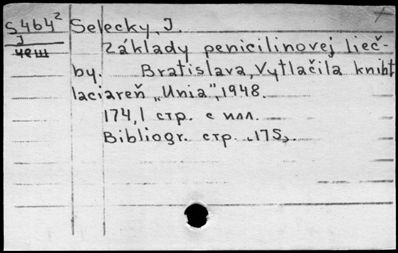 S464² Selecky, J.
J Základy penicilinovej lieč-
чеш by. Bratislava, Vytlačila kniht
laciareň „Unia", 1948.
174,1 стр. с илл.
Bibliogr. стр. „175„